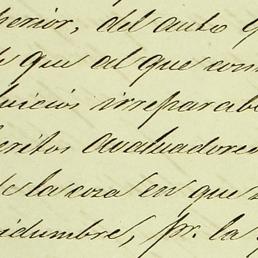 perior, del auto q
s que al que com
juicios irreparab
peritos avaluadores
e la cosa en que s
vidumbre, pr. la